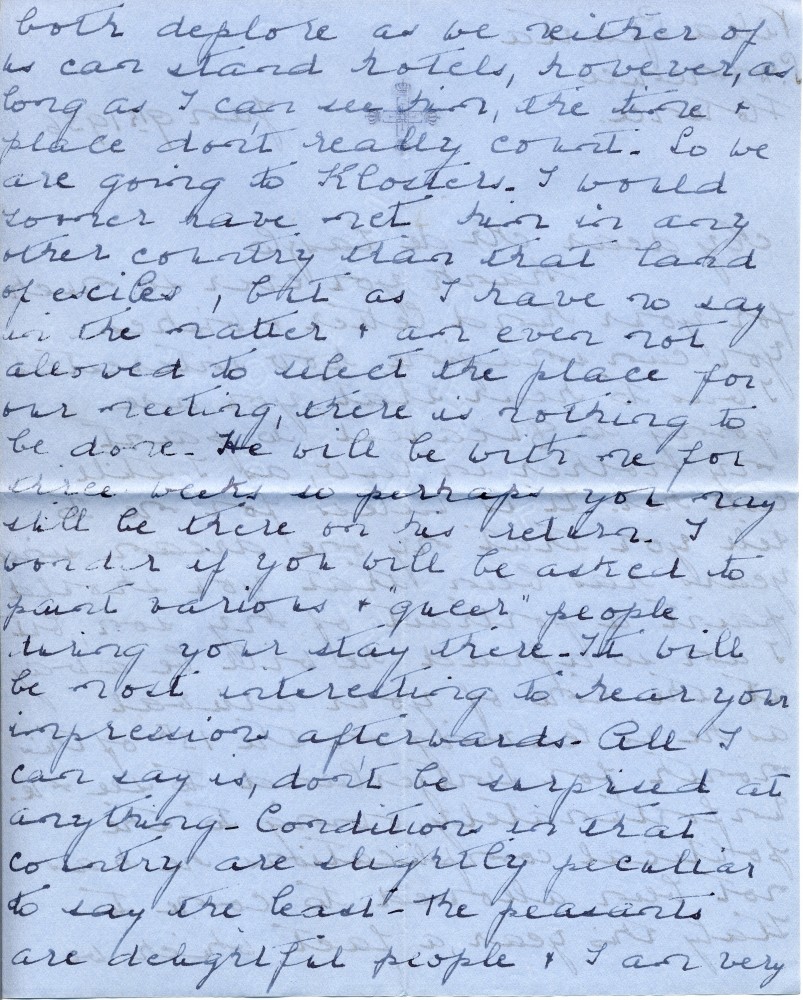 both deplore as we neither of
us can stand hotels, however, as
long as I can see him, the time +
place don't really count. So we
are going to Klosters. I would
sooner have met him in any
other country than that land
of exciles, but as I have no say
in the matter + am even not
allowed to select the place for
our meeting, there is nothing to
be done. He will be with me for
three weeks so perhaps you may
still be there on his return. I
wonder if you will be asked to
paint various + "queer" people
during your stay there. It will
be most interesting to hear your
impressions afterwards. All I
can say is, don't be surprised at
anything. Conditions in that
country are slightly peculiar
to say the least - The peasants
are delightful people + I am very